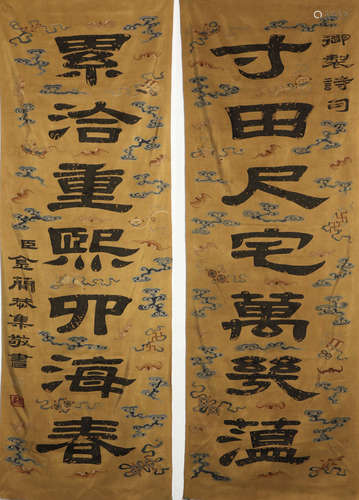 御製詩句
寸田尺宅萬幾薀
累洽重熙卯海春
臣金蘭集敬書